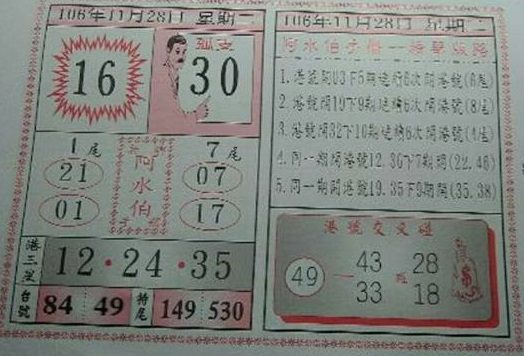 106年11月28日 星期二
16
孤支
30
1尾
21
01
阿水伯
7尾
07
17
港三星
12·24·35
台號
84 49
特尾
149 530
106年11月28日 星期二
阿水伯手冊一接擊版路
1.港號開03下5期連續6次開港號(6尾)
2.港號開19下9期連續6次開港號(8尾)
3.港號開32下10期連續6次開港號(4尾)
4.同一期開港號12.36下7期(22.46)
5.同一期開港號19.35下9期開(35.38)
港號交叉碰
49 43 33 28 18